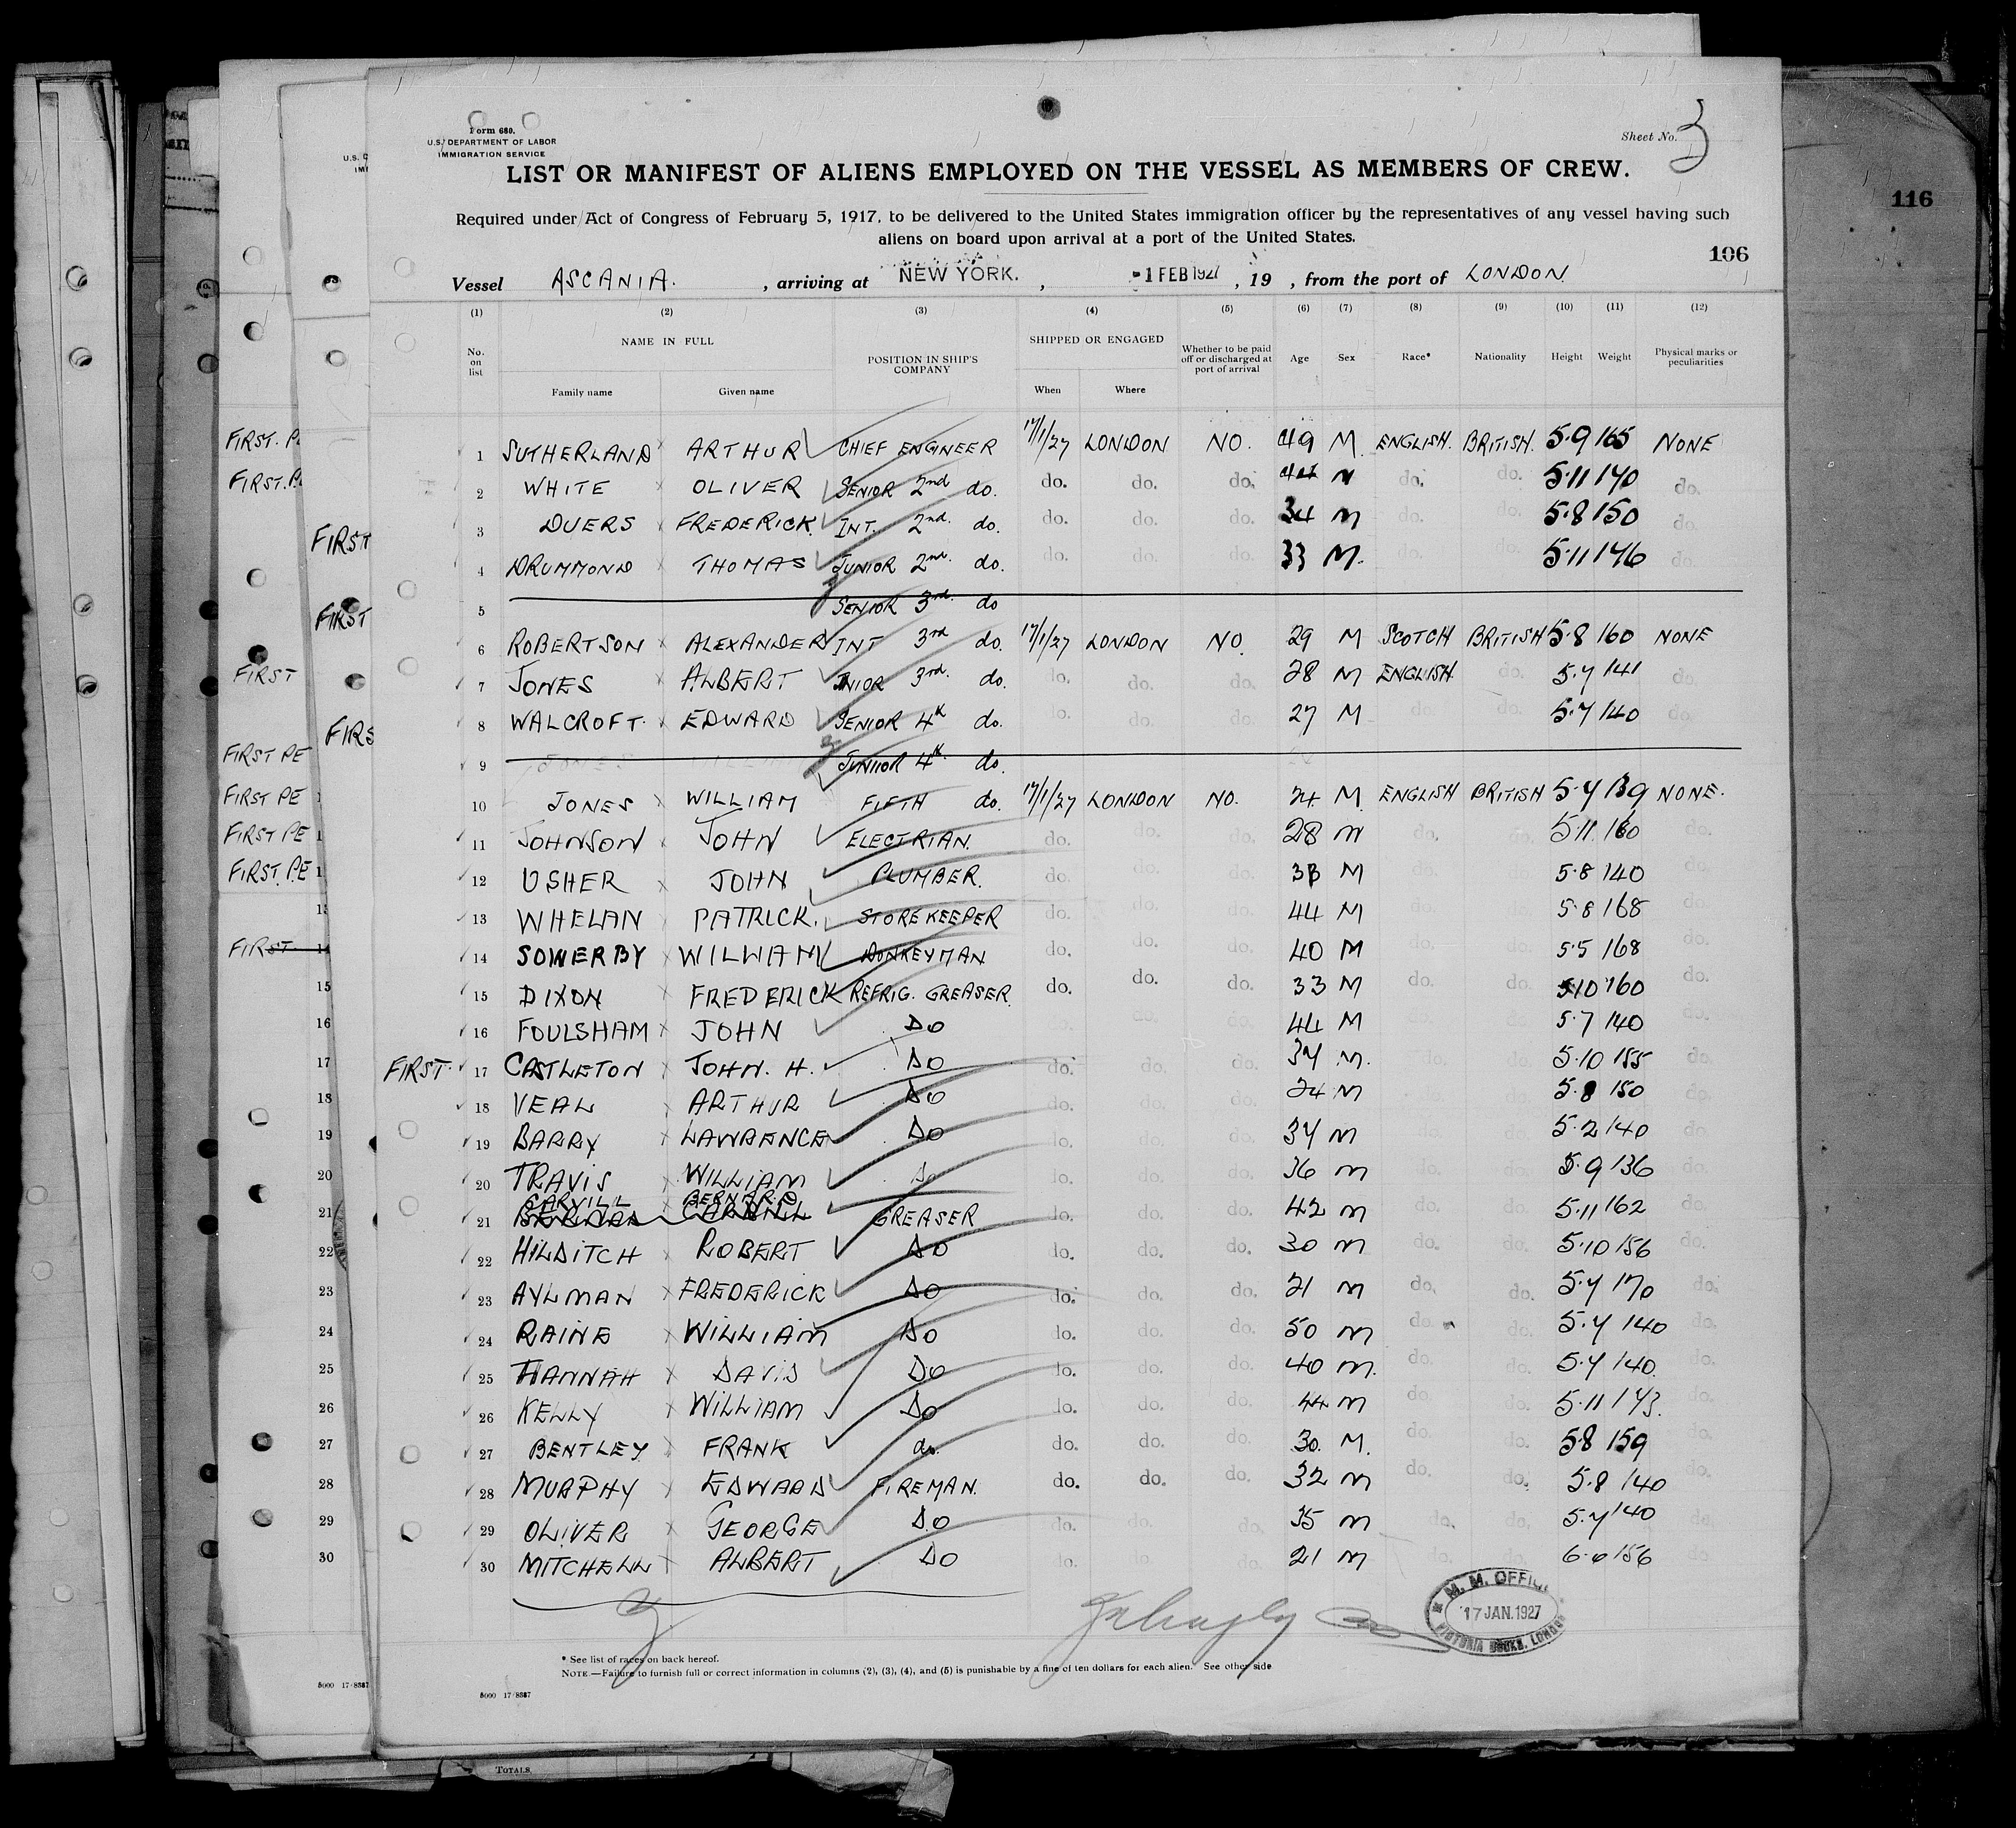 Form 680.
U.S. DEPARTMENT OF LABOR
IMMIGRATION SERVICE
Sheet No. 3
LIST OR MANIFEST OF ALIENS EMPLOYED ON THE VESSEL AS MEMBERS OF CREW.
Required under Act of Congress of February 5, 1917, to be delivered to the United States immigration officer by the representatives of any vessel having such
aliens on board upon arrival at a port of the United States.
116
106
Vessel ASCANIA. , arriving at NEW YORK. , 1 FEB 1927 , 19 , from the port of LONDON.
(1) (2) (3) (4) (5) (6) (7) (8) (9) (10) (11) (12)
No. on list NAME IN FULL POSITION IN SHIP'S COMPANY SHIPPED OR ENGAGED Whether to be paid off or discharged at port of arrival Age Sex Race* Nationality Height Weight Physical marks or peculiarities
Family name Given name When Where
1 SUTHERLAND ARTHUR CHIEF ENGINEER 17/1/27 LONDON NO. 49 M ENGLISH. BRITISH. 5·9 165 NONE
2 WHITE OLIVER SENIOR 2nd do. do. do. do. 44 M do. do. 5·11 140 do.
3 DUERS FREDERICK. INT. 2nd. do. do. do. do. 34 M do. do. 5·8 150 do.
4 DRUMMOND THOMAS JUNIOR 2nd. do. do. do. do. 33 M. do. do. 5·11 146 do.
5 SENIOR 3rd. do
6 ROBERTSON ALEXANDER INT 3rd do. 17/1/27 LONDON NO. 29 M SCOTCH BRITISH 5·8 160 NONE
7 JONES ALBERT JNIOR 3rd. do. do. do. do. 28 M ENGLISH do. 5·7 141 do.
8 WALCROFT. EDWARD SENIOR 4th do. do. do. do. 27 M do. do. 5·7 140 do.
9 JUNIOR 4th. do.
10 JONES WILLIAM FIFTH do. 17/1/27 LONDON NO. 24 M ENGLISH BRITISH 5·7 139 NONE.
11 JOHNSON JOHN ELECTRIAN. do. do. do. 28 M do. do. 5·11 160 do.
12 USHER JOHN PLUMBER. do. do. do. M do. do. 5·8 140 do.
13 WHELAN PATRICK. STOREKEEPER do. do. do. 44 M do. do. 5·8 168 do.
14 SOWERBY WILLIAM DONKEYMAN do. do. do. 40 M do. do. 5·5 168 do.
15 DIXON FREDERICK REFRIG. GREASER. do. do. do. 33 M do. do. 5·10 160 do.
16 FOULSHAM JOHN DO do. do. 44 M do. do. 5·7 140 do.
FIRST. 17 CASTLETON JOHN. H. DO do. do. do. 37 M. do. do. 5·10 155 do.
18 VEAL ARTHUR DO do. do. do. 24 M do. do. 5·8 150 do.
19 BARRY LAWRENCE DO do. do. do. 37 M do. do. 5·2 140 do.
20 TRAVIS WILLIAM Do do. do. do. 36 M do. do. 5·9 136 do.
21 CARVILL BERNARD GREASER do. do. do. 42 M do. do. 5·11 162 do.
22 HILDITCH ROBERT DO do. do. do. 30 M do. do. 5·10 156 do.
23 AYLMAN FREDERICK DO do. do. do. 21 M do. do. 5·7 170 do.
24 RAINE WILLIAM DO do. do. do. 50 M do. do. 5·7 140 do.
25 HANNAH DAVID DO do. do. do. 40 M. do. do. 5·7 140. do.
26 KELLY WILLIAM DO do. do. do. 44 M do. do. 5·11 173. do.
27 BENTLEY. FRANK do. do. do. do. 30. M. do. do. 5·8 159 do.
28 MURPHY EDWARD FIREMAN. do. do. do. 32 M do. do. 5·8 140 do.
29 OLIVER GEORGE DO do. do. do. 35 M do. do. 5·7 140 do.
30 MITCHELL ALBERT DO do. do. do. 21 M do. do. 6·0 156 do
M. M. OFFICE
17 JAN. 1927
VICTORIA DOCKS, LONDON
* See list of races on back hereof.
NOTE.—Failure to furnish full or correct information in columns (2), (3), (4), and (5) is punishable by a fine of ten dollars for each alien. See other side
5000 17-8387
FIRST. PE
FIRST. PE
FIRST
FIRST
FIRST
FIRS
FIRST PE
FIRST PE
FIRST PE
FIRST. PE
FIRST
15
16
17
18
19
20
21
22
23
24
25
26
27
28
29
30
5000 17-8387
TOTALS